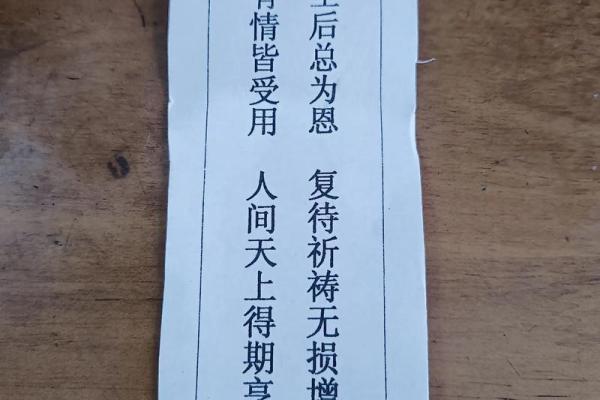 后总为恩 复待祈祷无损增
有情皆受用 人间天上得期